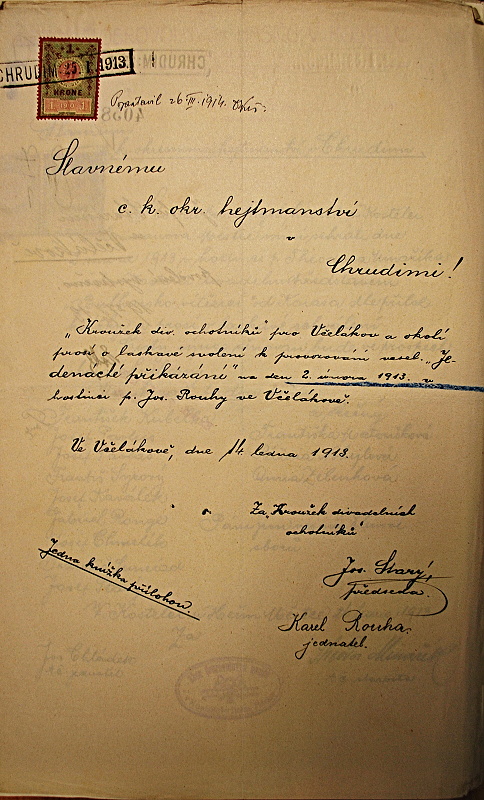 CHRUDIM 25 I 1913.
1
KRONE
1 1910 1
26 III. 1914.
Slavnému
c. k. okr. hejtmanství
v
Chrudimi!
„Kroužek div. ochotníků" pro Včelákov a okolí
prosí o laskavé svolení k provozování vesel. „Je-
denácté přikázání" na den 2. února 1913. v
hostinci p. Jos. Rouhy ve Včelákově.
Ve Včelákově, dne 14 ledna 1913.
Za „Kroužek divadelních
ochotníků"
Jedna knížka přílohou.
Jos. Starý,
předseda.
Karel Rouha.
jednatel.